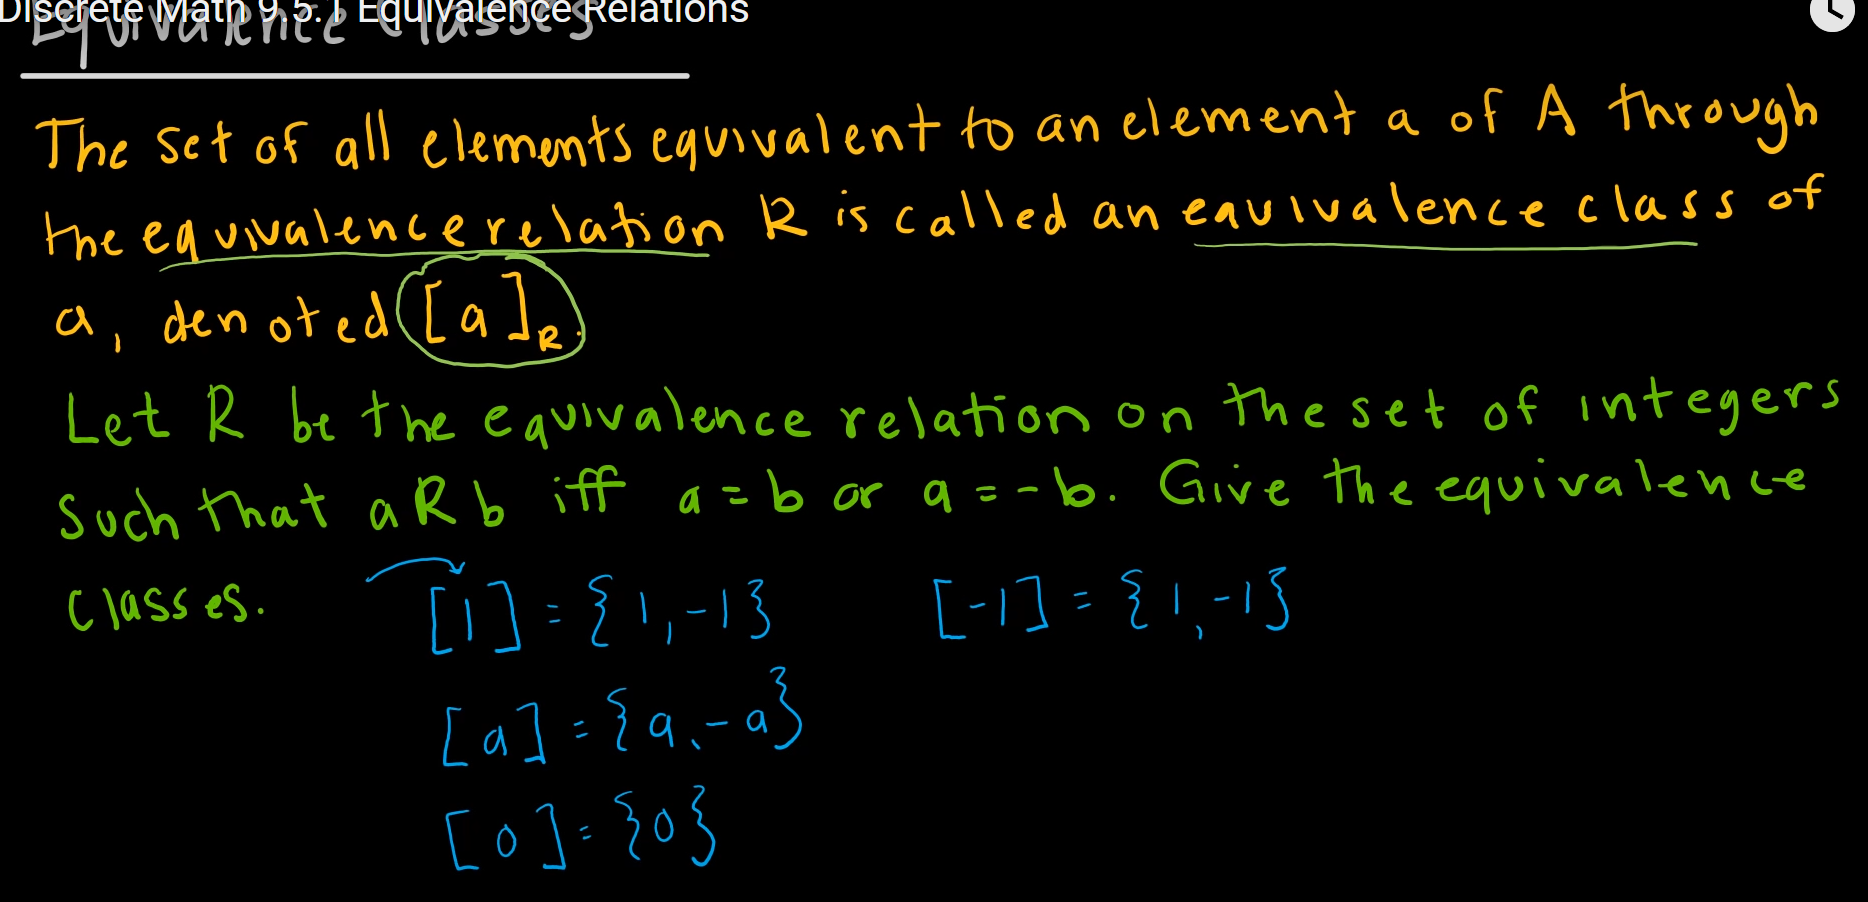 Discrete Math 9.5.1 Equivalence Relations
Equivalence Classes
The set of all elements equivalent to an element a of A through
the equivalence relation R is called an equivalence class of
a, denoted [a]R.
Let R be the equivalence relation on the set of integers
such that aRb iff a=b or a=-b. Give the equivalence
classes.
[1]={1,-1} [-1]={1,-1}
[a]={a,-a}
[0]={0}